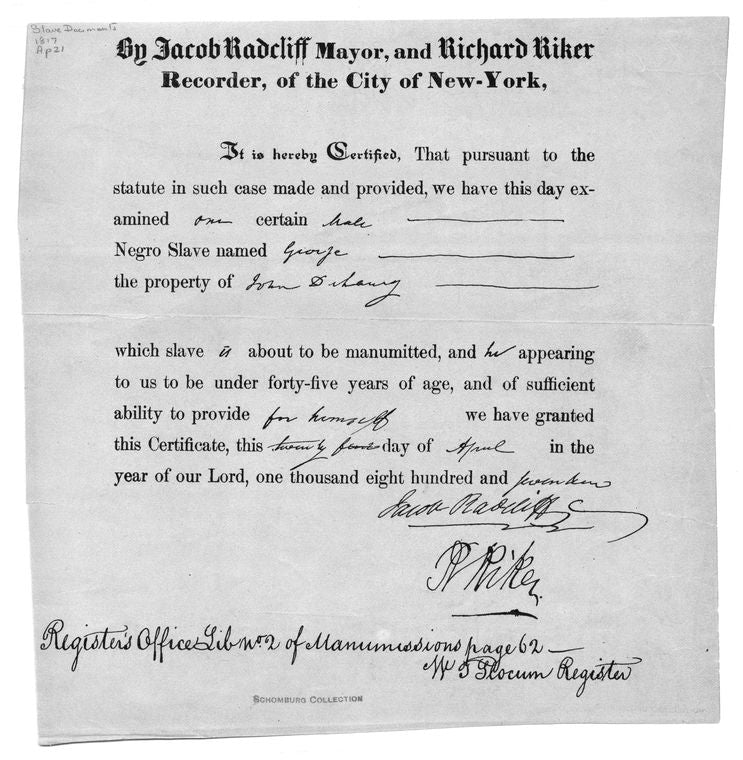 Slave Documents
1817
Ap 21
By Jacob Radcliff Mayor, and Richard Riker
Recorder, of the City of New-York,
It is hereby Certified, That pursuant to the
statute in such case made and provided, we have this day ex-
amined one certain Male
Negro Slave named George
the property of John
which slave is about to be manumitted, and he appearing
to us to be under forty-five years of age, and of sufficient
ability to provide for himself we have granted
this Certificate, this twenty day of April in the
year of our Lord, one thousand eight hundred and seventeen
Jacob Radcliff
R Riker
Register's Office Lib No. 2 of Manumissions page 62
W T Slocum Register
SCHOMBURG COLLECTION